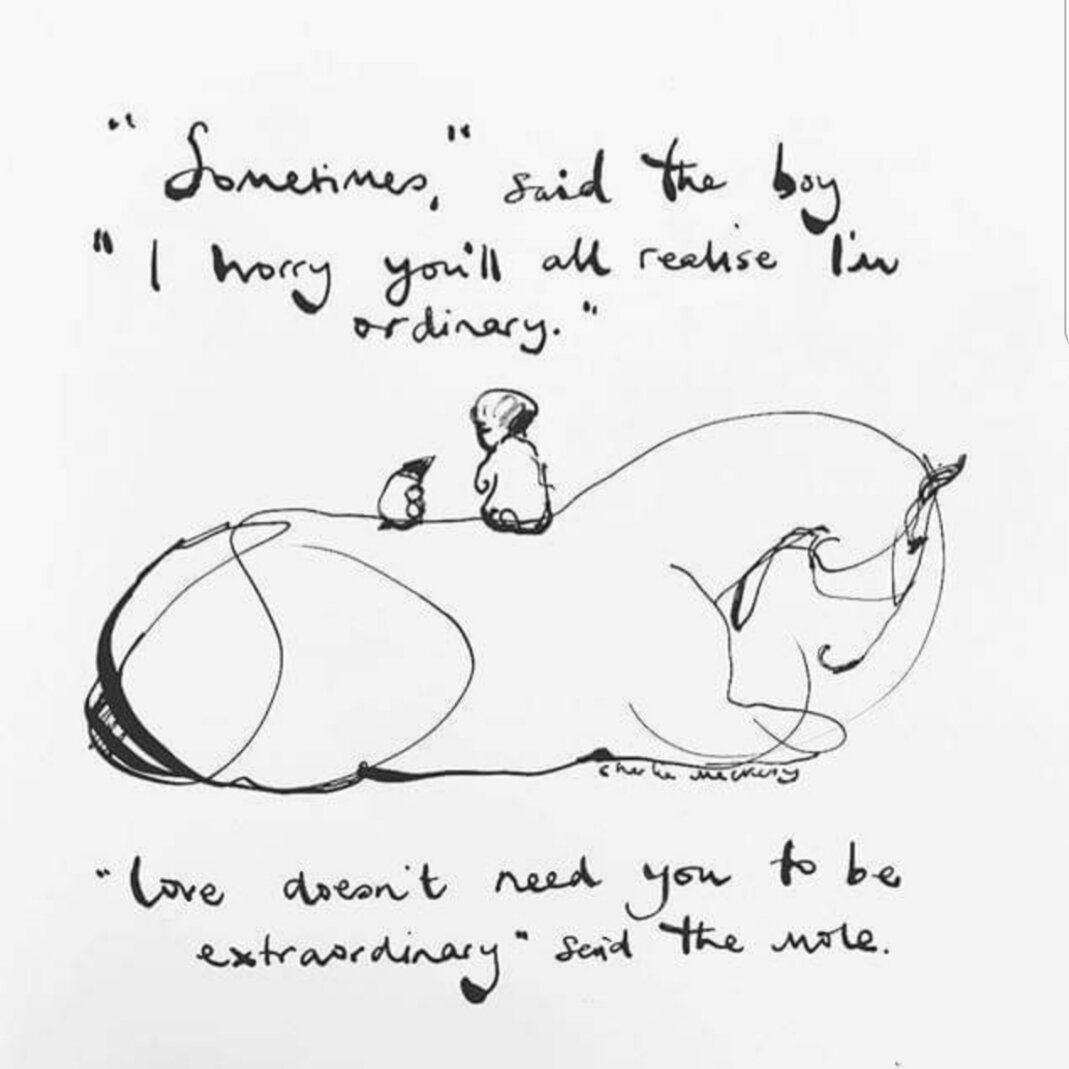 "Sometimes," said the boy
"I worry you'll all realise I'm
ordinary."
charlie mackesy
"love doesn't need you to be
extraordinary" said the mole.